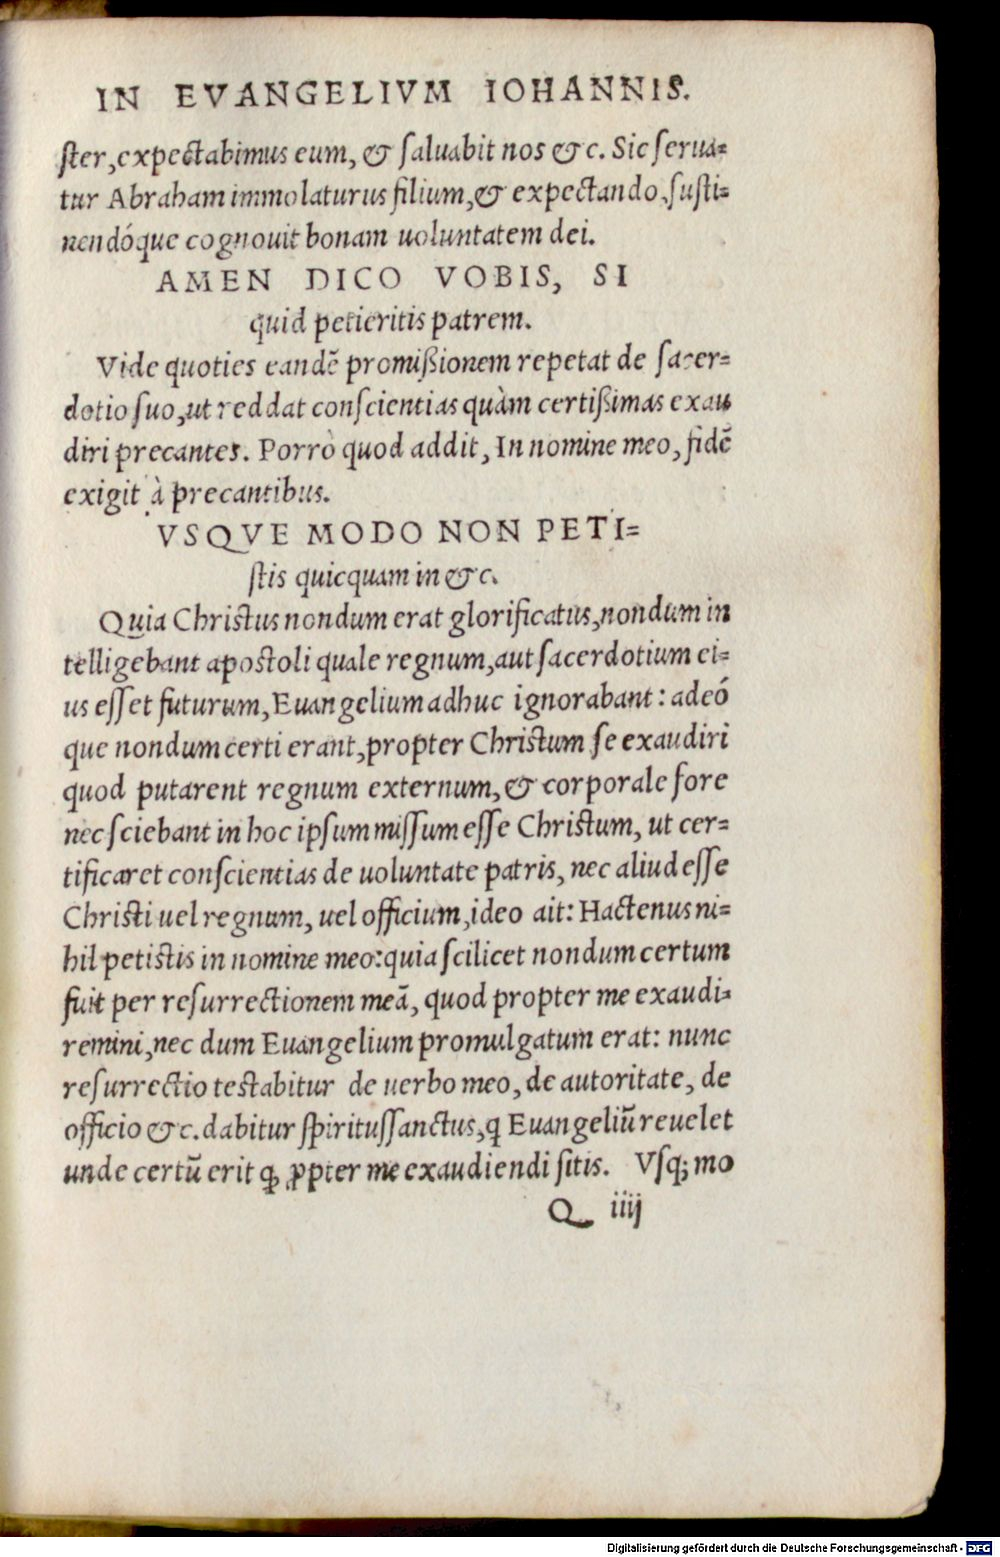 IN EVANGELIVM IOHANNIS.
ster, expectabimus eum, & saluabit nos &c. Sic serua=
tur Abraham immolaturus filium, & expectando, susti=
nendóque cognouit bonam uoluntatem dei.
AMEN DICO VOBIS, SI
quid petieritis patrem.
Vide quoties eandē promißionem repetat de sacer=
dotio suo, ut reddat conscientias quàm certißimas exau
diri precantes. Porrò quod addit, In nomine meo, fidē
exigit à precantibus.
VSQVE MODO NON PETI=
stis quicquam in &c.
Quia Christus nondum erat glorificatus, nondum in
telligebant apostoli quale regnum, aut sacerdotium ei=
us esset futurum, Euangelium adhuc ignorabant: adeó
que nondum certi erant, propter Christum se exaudiri
quod putarent regnum externum, & corporale fore
nec sciebant in hoc ipsum missum esse Christum, ut cer=
tificaret conscientias de uoluntate patris, nec aliud esse
Christi uel regnum, uel officium, ideo ait: Hactenus ni=
hil petistis in nomine meo: quia scilicet nondum certum
fuit per resurrectionem meā, quod propter me exaudi=
remini, nec dum Euangelium promulgatum erat: nunc
resurrectio testabitur de uerbo meo, de autoritate, de
officio &c. dabitur spiritussanctus, q Euangeliū reuelet
unde certū erit ꝙ ꝓpter me exaudiendi sitis. Vsq; mo
Q iiij
Digitalisierung gefördert durch die Deutsche Forschungsgemeinschaft - DFG